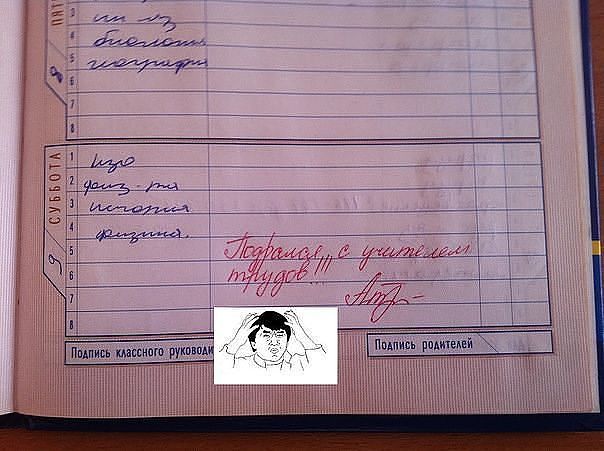 ПЯТ
8
3 ин. яз
4 биология
5 география
6
7
8
СУББОТА
9
1 изо
2 физ-ра
3 история
4 физика.
5 Подрался с учителем
6 трудов!!!
7
8
Подпись классного руководи
Подпись родителей